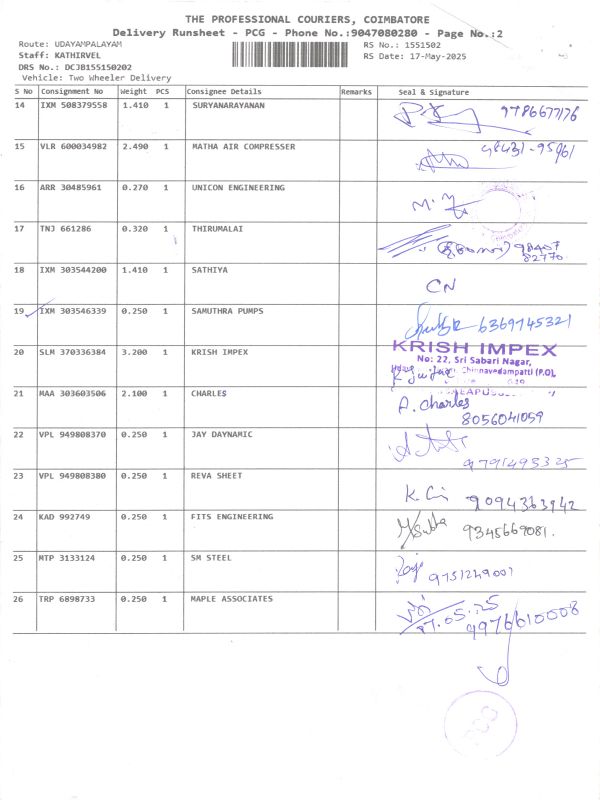 THE PROFESSIONAL COURIERS, COIMBATORE
Delivery Runsheet - PCG - Phone No.:9047080280 - Page No.:2
Route: UDAYAMPALAYAM RS No.: 1551502
Staff: KATHIRVEL RS Date: 17-May-2025
DRS No.: DCJB155150202
Vehicle: Two Wheeler Delivery
S No Consignment No Weight PCS Consignee Details Remarks Seal & Signature
14 IXM 508379558 1.410 1 SURYANARAYANAN 9786677176
15 VLR 600034982 2.490 1 MATHA AIR COMPRESSER 98431-95961
16 ARR 30485961 0.270 1 UNICON ENGINEERING
17 TNJ 661286 0.320 1 THIRUMALAI 98407
82770
18 IXM 303544200 1.410 1 SATHIYA CN
19 IXM 303546339 0.250 1 SAMUTHRA PUMPS 6369745321
20 SLM 370336384 3.200 1 KRISH IMPEX KRISH IMPEX
No: 22, Sri Sabari Nagar,
Chinnavedampatti (P.O),
21 MAA 303603506 2.100 1 CHARLES A. Charles
8056041059
22 VPL 949808370 0.250 1 JAY DAYNAMIC
9791495325
23 VPL 949808380 0.250 1 REVA SHEET 9094363942
24 KAD 992749 0.250 1 FITS ENGINEERING 9345669081.
25 MTP 3133124 0.250 1 SM STEEL 9751249007
26 TRP 6898733 0.250 1 MAPLE ASSOCIATES
17.05.25 9976610008